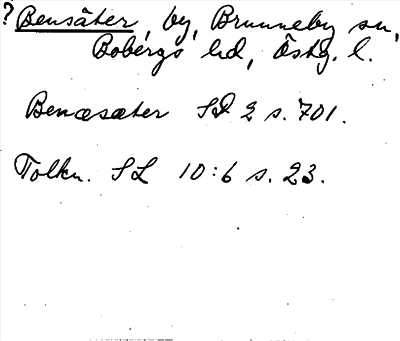 ? Bensäter, by, Brunneby sn,
Bobergs hd, Östg. l.
Benæsæter SD 2 s. 701.
Tolkn. SL 10:6 s. 23.